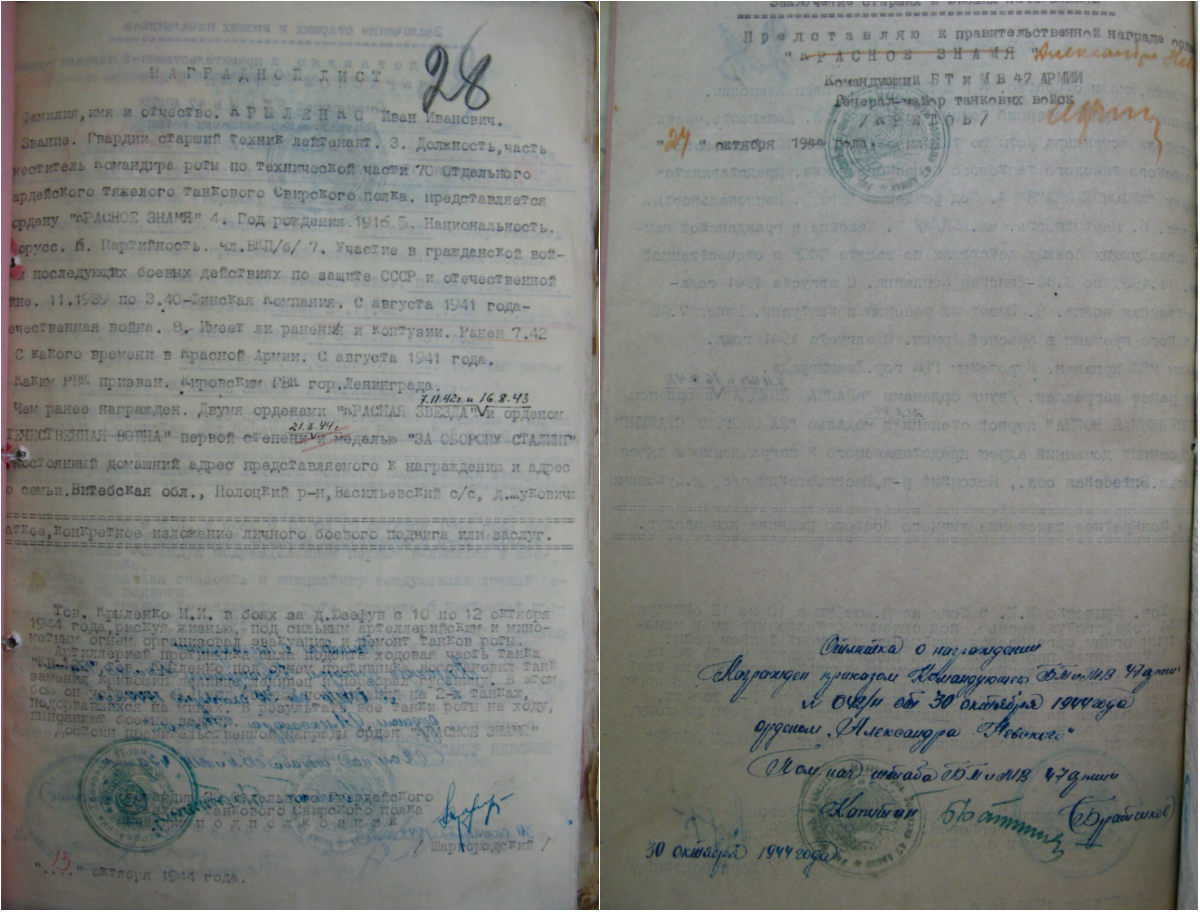 28
НАГРАДНОЙ ЛИСТ
Фамилия,имя и отчество. КРЫЛЕНКО Иван Иванович.
Звание. Гвардии старший техник лейтенант. 3. Должность,часть
меститель Командира роты по технической части 70 Отдельного
ардейского Тяжелого танкового Свирского полка. Представляется
ордену "КРАСНОЕ ЗНАМЯ" 4. Год рождения.1916 5. Национальность.
орусс. 6. Партийность. Чл.ВКП/б/ 7. Участие в гражданской вой-
и последующих боевых действиях по защите СССР и отечественной
йне. 11.1939 по 3.40-Финская Компания. С августа 1941 года-
ечественная война. 8. Имеет ли ранения и контузии. Ранен 7.42
С какого времени в Красной Армии. С августа 1941 года.
Каким РВК призван. Кировским РВК гор.Ленинграда.
7.11.42г. и 16.8.43
Чем ранее награжден. Двумя орденами "КРАСНАЯ ЗВЕЗДА" и орденом
21.3.44г.
ТЕЧЕСТВЕННАЯ ВОЙНА" первой степени и медалью "ЗА ОБОРОНУ СТАЛИНГ"
Постоянный домашний адрес представляемого к награждению и адрес
о семьи.Витебская обл., Полоцкий р-н,Васильевский с/с, д.Жуковичи
аткое,конкретное изложение личного боевого подвига или заслуг.
Тов. Крыленко И.И. в боях за д. с 10 по 12 октября
1944 года,рискуя жизнью, под сильным артиллерийским и мино-
метным огнем организовал эвакуацию и ремонт танков роты.
Артиллерией противника была подбита ходовая часть танка
тов. Крыленко под огнем противника восстановил танк
заменил и собрал гусеницу. В этом
бою он на 2-х танках,
подорвавшихся на минах. В результате все танки роты на ходу,
выполняют боевые задачи.
Достоин правительственной награды орден "КРАСНОЕ ЗНАМЯ"
Гвардейского
танкового Свирского полка
подполковник
/ Шаргородский /
"13" октября 1944 года.
Заключение старших и высших начальников
Представляю к правительственной награде орде
"КРАСНОЕ ЗНАМЯ" Александр Нев
Командующий БТ и МВ 42 АРМИИ
Генерал-майор танковых войск
/АРЕТОВ/
"24" октября 1944 года.
Отметка о награждении
Награжден приказом Командующего БТ и МВ 42 армии
№ 042/н от 30 октября 1944 года
орденом „Александра Невского"
Пом. нач штаба БТ и МВ 42 армии
Капитан
(Братчиков)
30 октября 1944 года